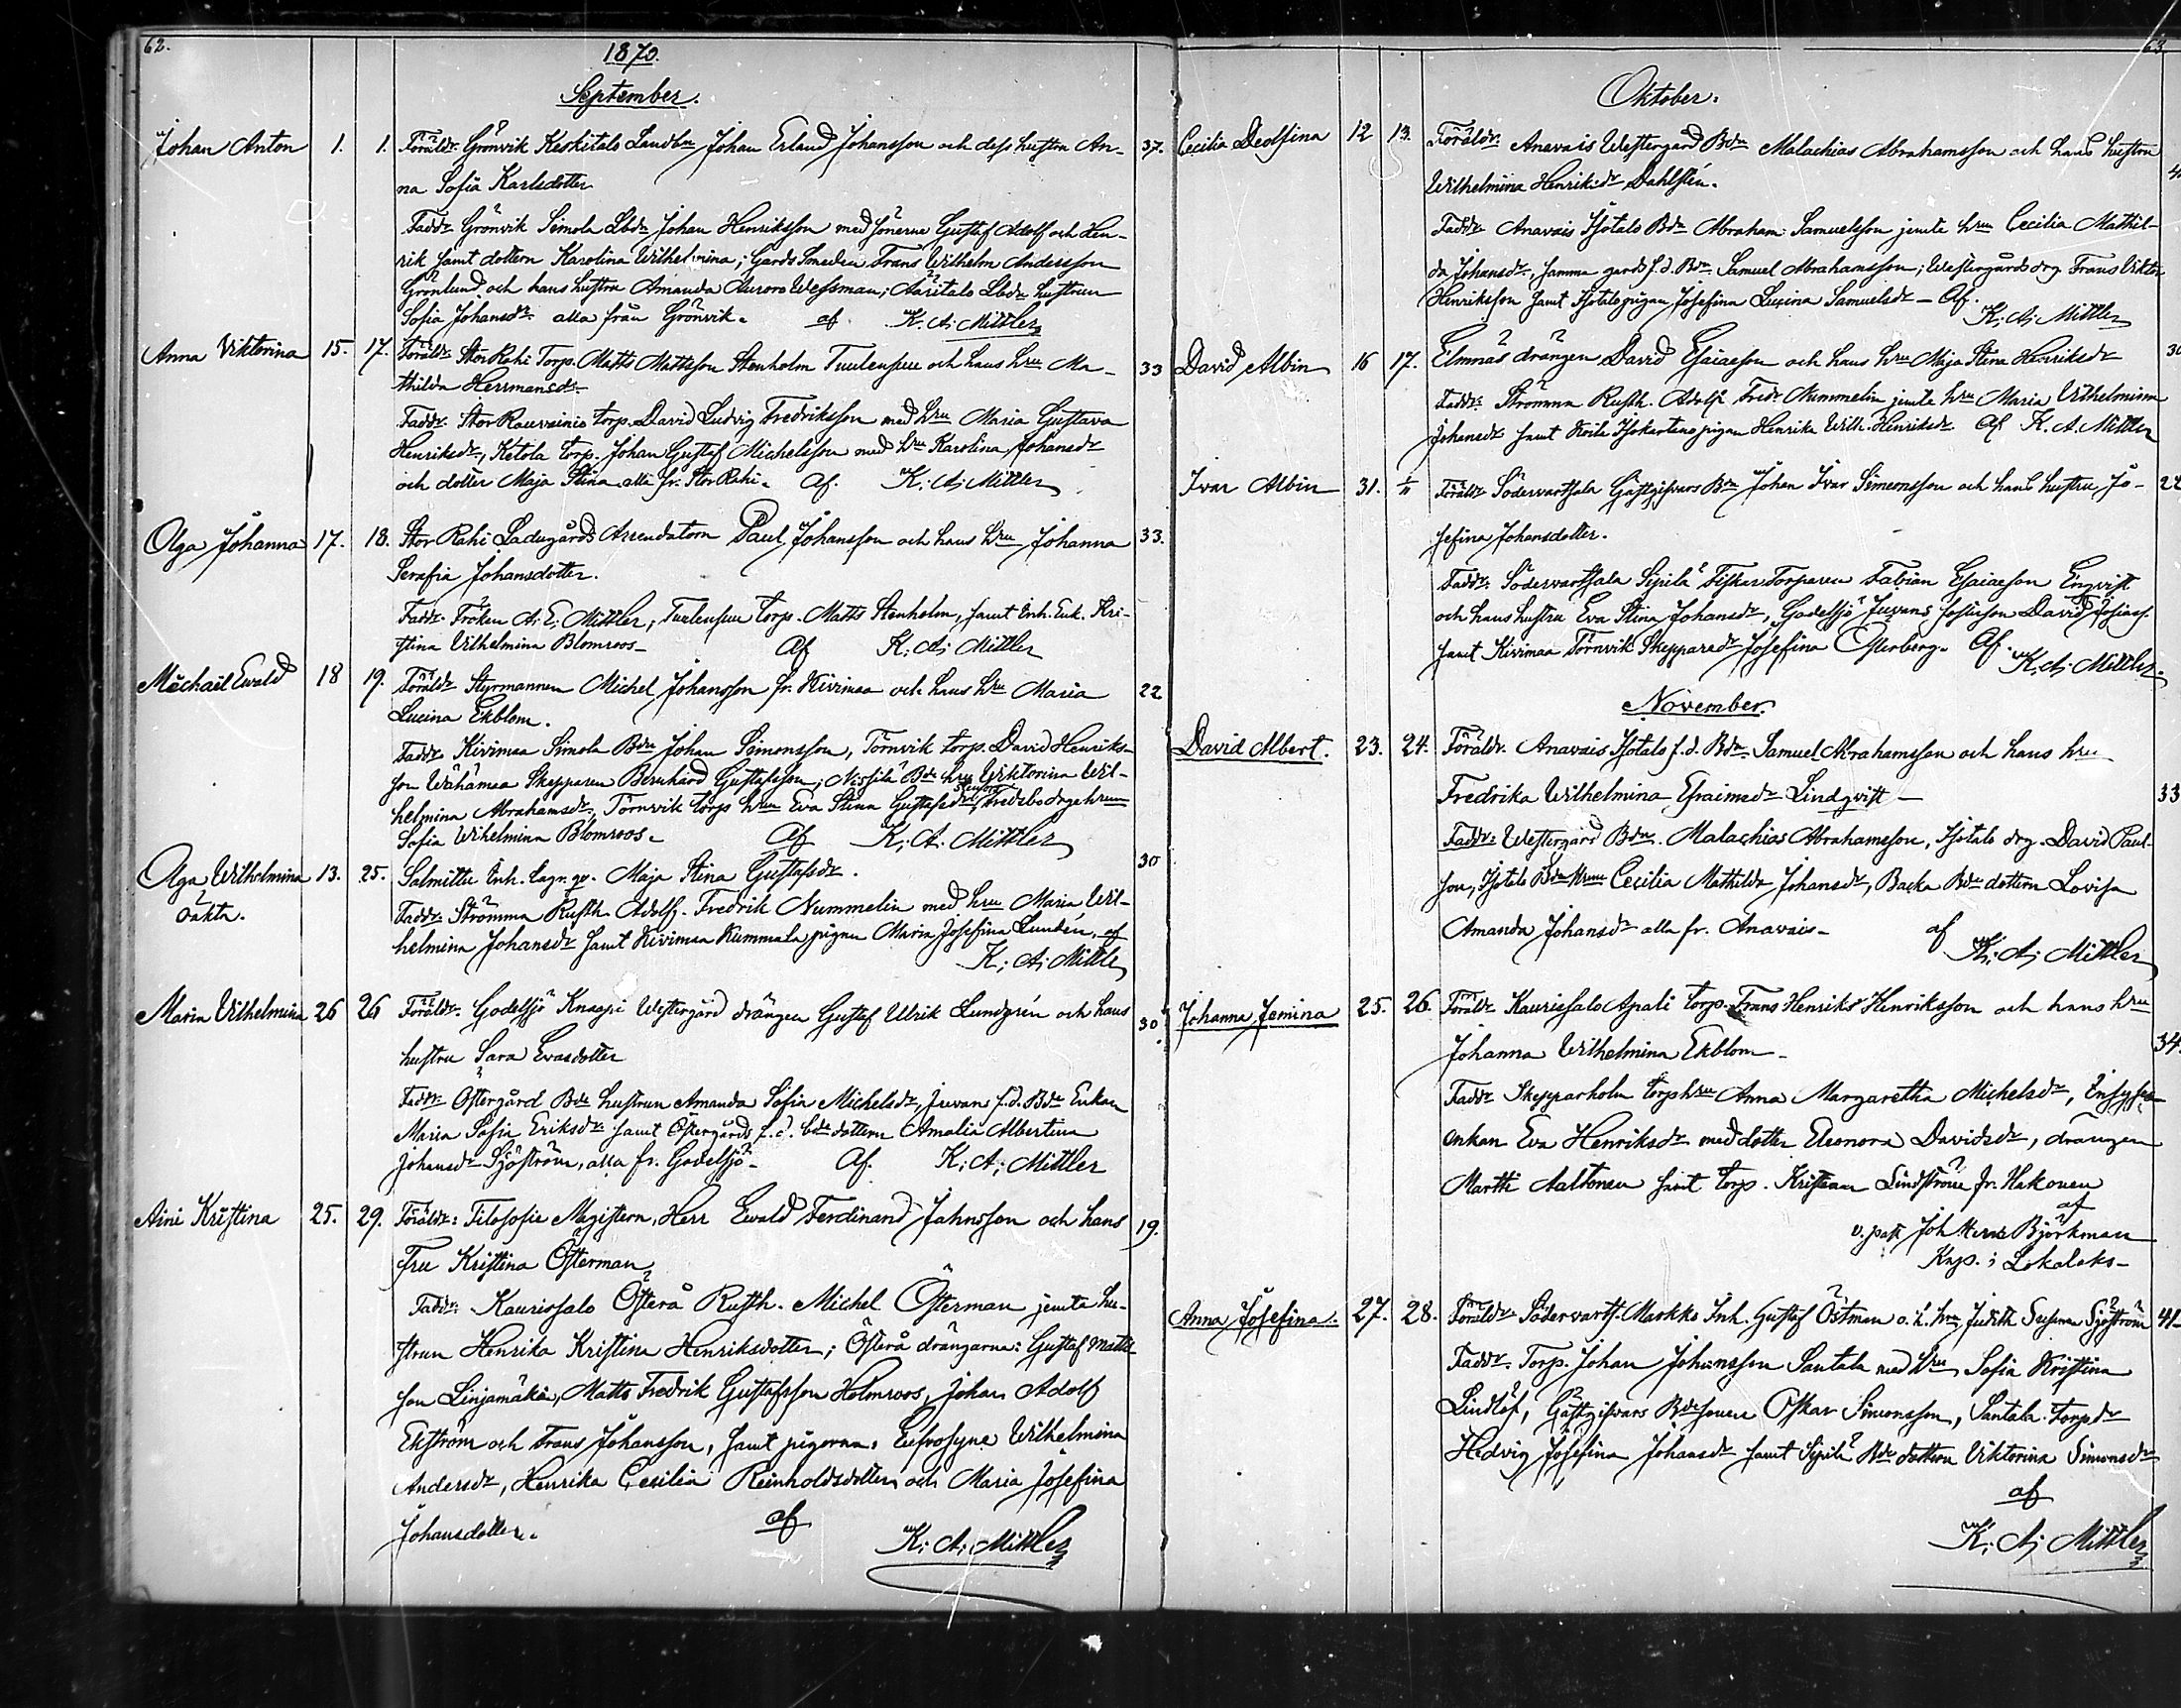 62.
1870.
September.
Johan Anton 1. 1. Föräldr. Grönvik Keskitalo Landbn Johan Erland Johansson och dess hustru An- 37.
na Sofia Karlsdotter
Faddr. Grönvik Simola Lbdn Johan Henriksson med sönerna Gustaf Adolf och Hen-
rik samt dottern Karolina Wilhelmina; Gårds Smeden Frans Wilhelm Andersson
Grönlund och hans hustru Amanda Aurora Wessman; Aaritalo Lbdn hustrun
Sofia Johansdr alla från Grönvik. af K. A. Mittler
Anna Viktorina 15. 17. Föräldr. Stor Rahi Torp. Matts Mattsson Stenholm Tuulensuu och hans hru Ma- 33
thilda Hermansdr
Faddr. Stor Rauvainio torp. David Ludvig Fredriksson med hru Maria Gustava
Henriksdr, Ketola torp. Johan Gustaf Michelsson med hru Karolina Johansdr
och dotter Maja Stina alla fr. Stor Rahi. Af. K. A. Mittler
Olga Johanna 17. 18. Stor Rahi Ladugårds Arrendatorn Paul Johansson och hans hru Johanna 33.
Serafia Johansdotter.
Faddr. Fröken A. E. Mittler, Tuulensuu torp. Matts Stenholm, samt Inh. Enk. Kri-
stina Wilhelmina Blomroos Af K. A. Mittler
Mechail Ewald 18 19. Föräldr Styrmannen Michel Johansson fr. Kivimaa och hans hru Maria 22
Lucina Ekblom.
Faddr Kivimaa Simola Bdn Johan Simonsson, Törnvik torp. David Henriks-
son Wähämaa Skepparen Bernhard Gustafsson; Nissilä Bde hru Wiktorina Wil-
helmina Abrahamsdr, Törnvik torps hrun Eva Stina Gustafsdr, Fredsbo drgehrun
Sofia Wilhelmina Blomroos. Af K. A. Mittler
Olga Wilhelmina 13. 25. Salmittu Inh. lägr. qv. Maja Stina Gustafsdr. 30
oäkta.
Faddr. Strömma Rusth. Adolf Fredrik Nummelin med hru Maria Wil-
helmina Johansdr samt Kivimaa Kummala pigan Maria Josefina Lundén, af
K. A. Mittler
Maria Wilhelmina 26 26 Föräldr. Godelsjö Knaapi Westergård drängen Gustaf Ulrik Lundgrén och hans 30
hustru Sara Evasdotter
Faddr. Östergård Bde hustrun Amanda Sofia Michelsdr, Juvans f.d. Bde Enkan
Maria Sofia Eriksdr samt Östergårds f.d. bde dottern Amalia Albertina
Johansdr Sjöström, alla fr. Godelsjö. Af. K. A. Mittler
Aini Kristina 25. 29. Föräldr: Filosofie Magistern, Herr Ewald Ferdinand Jahnsson och hans 19.
Fru Kristina Österman
Faddr: Kaurissalo Österå Rusth. Michel Österman jemte hu-
strun Henrika Kristina Henriksdotter; Österå drängarne: Gustaf Matts-
son Linjamäki, Matts Fredrik Gustafsson Holmroos, Johan Adolf
Ekström och Frans Johansson, samt pigorna: Eufrosyne Wilhelmina
Andersdr, Henrika Cecilia Reinholdsdotter och Maria Josefina
Johansdotter. af K. A. Mittler
63.
Oktober.
Cecilia Deolfina 12 13. Föräldr: Anavais Westergård Bdn Malachias Abrahamsson och hans hustru
Wilhelmina Henriksdr Dahlstén.
Faddr Anavais Isotalo Bdn Abraham Samuelsson jemte hru Cecilia Mathil-
da Johansdr, samma gårds f.d. Bdn Samuel Abrahamsson; Westergårds drg Frans Viktor
Henriksson samt Isotalo pigan Josefina Lucina Samuelsdr — Af.
K. A. Mittler
David Albin 16 17. Elmnäs drängen David Esaiaeson och hans hru Maja Stina Henriksdr
Faddr: Strömma Rusth. Adolf Fredr. Nummelin jemte hru Maria Wilhelmina
Johansdr samt Koila Isokartano pigan Henrika Wilh. Henriksdr. Af K. A. Mittler
Ivar Albin 31. 1/11 Föräldr Södervartsala Gästgifvars Bdn Johan Ivar Simonsson och hans hustru Jo- 22
sefina Johansdotter.
Faddr: Södervartsala Sipilä Fiskar Torparen Fabian Esaiaeson Engvist
och hans hustru Eva Stina Johansdr, Godelsjö Juvans David
samt Kivimaa Törnvik Sheppardr Josefina Österberg. Af.
K. A. Mittler.
November.
David Albert. 23. 24. Föräldr. Anavais Isotalo f.d. Bdn Samuel Abrahamsson och hans hru
Fredrika Wilhelmina Efraimsdr Lindqvist — 33
Faddr: Westergård Bdn. Malachias Abrahamsson, Isotalo drg. David Paul-
son, Isotalo Bde hrun Cecilia Mathilda Johansdr, Backa Bde dottern Lovisa
Amanda Johansdr alla fr. Anavais. af
K. A. Mittler
Johanna Jemina 25. 26. Föräldr Kaurissalo Apali torp. Frans Henriks Henriksson och hans hru
Johanna Wilhelmina Ekblom. 34.
Faddr Skepparholm torphru Anna Margaretha Michelsdr,
enkan Eva Henriksdr med dotter Eleonora Davidsdr, drängen
Martti Aaltonen samt torp. Kristian Lindström fr. Hakonen
af
v. past Joh Herm Björkman
Kap. i Lokalaks-
Anna Josefina. 27. 28. Föräldr Södervarts. Markko Inh. Gustaf Östman o. h. hru Judith Susanna Sjöström 41
Faddr. Torp. Johan Johansson Santala med hru Sofia Kristina
Lindlöf, Gästgifvars Bdesonen Oskar Simonsson, Santala Torpdr
Hedvig Josefina Johansdr samt Sipilä Bde dottern Viktorina Simonsdr
af
K. A. Mittler